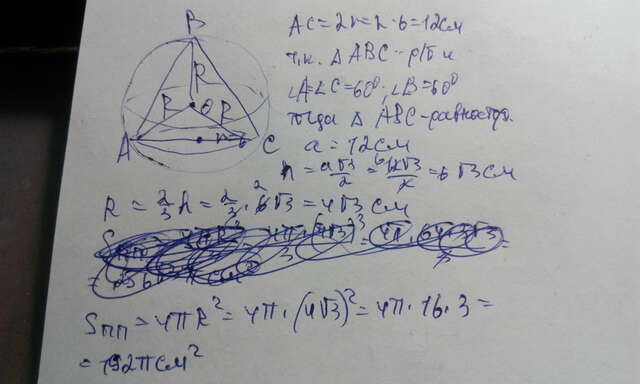 B
R
R O R
A r=6 C
AC=2r=2·6=12см
т.к. △ABC - р/б и
∠A=∠C=60°, ∠B=60°
тогда △ABC-равностор.
a=12см
h = a√3/2 = 12√3/2 = 6√3 см
R = 2/3 h = 2/3 · 6√3 = 4√3 см
Sпп = 4πR² = 4π·(4√3)² = 4π·16·3 =
= 192π см²